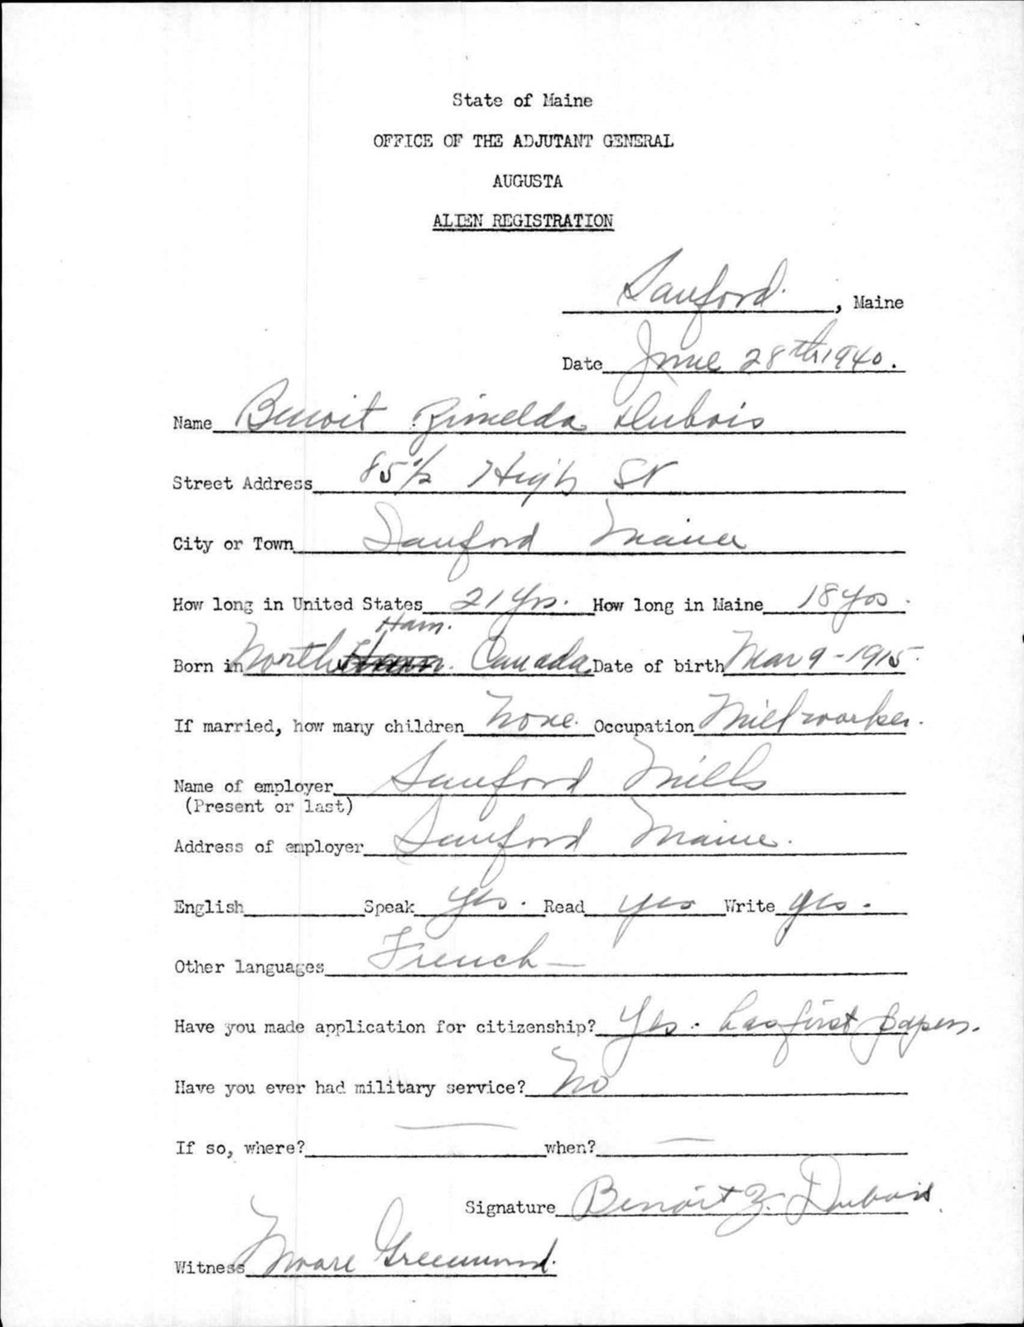 State of Maine
OFFICE OF THE ADJUTANT GENERAL
AUGUSTA
ALIEN REGISTRATION
Sanford, Maine
Date June 28th 1940.
Name Benoit Dubois
Street Address 85 1/2 High St
City or Town Sanford Maine
How long in United States 21 yrs. How long in Maine 18 yrs.
Ham.
Born in North Canada Date of birth Mar 9-1915.
If married, how many children None. Occupation Mill worker.
Name of employer Sanford Mills
(Present or last)
Address of employer Sanford Maine.
English Speak Yes. Read yes Write yes.
Other languages French —
Have you made application for citizenship? Yes - has first papers.
Have you ever had military service? No
If so, where? — when? —
Signature Benoit Z. Dubois
Witness Greenwood.